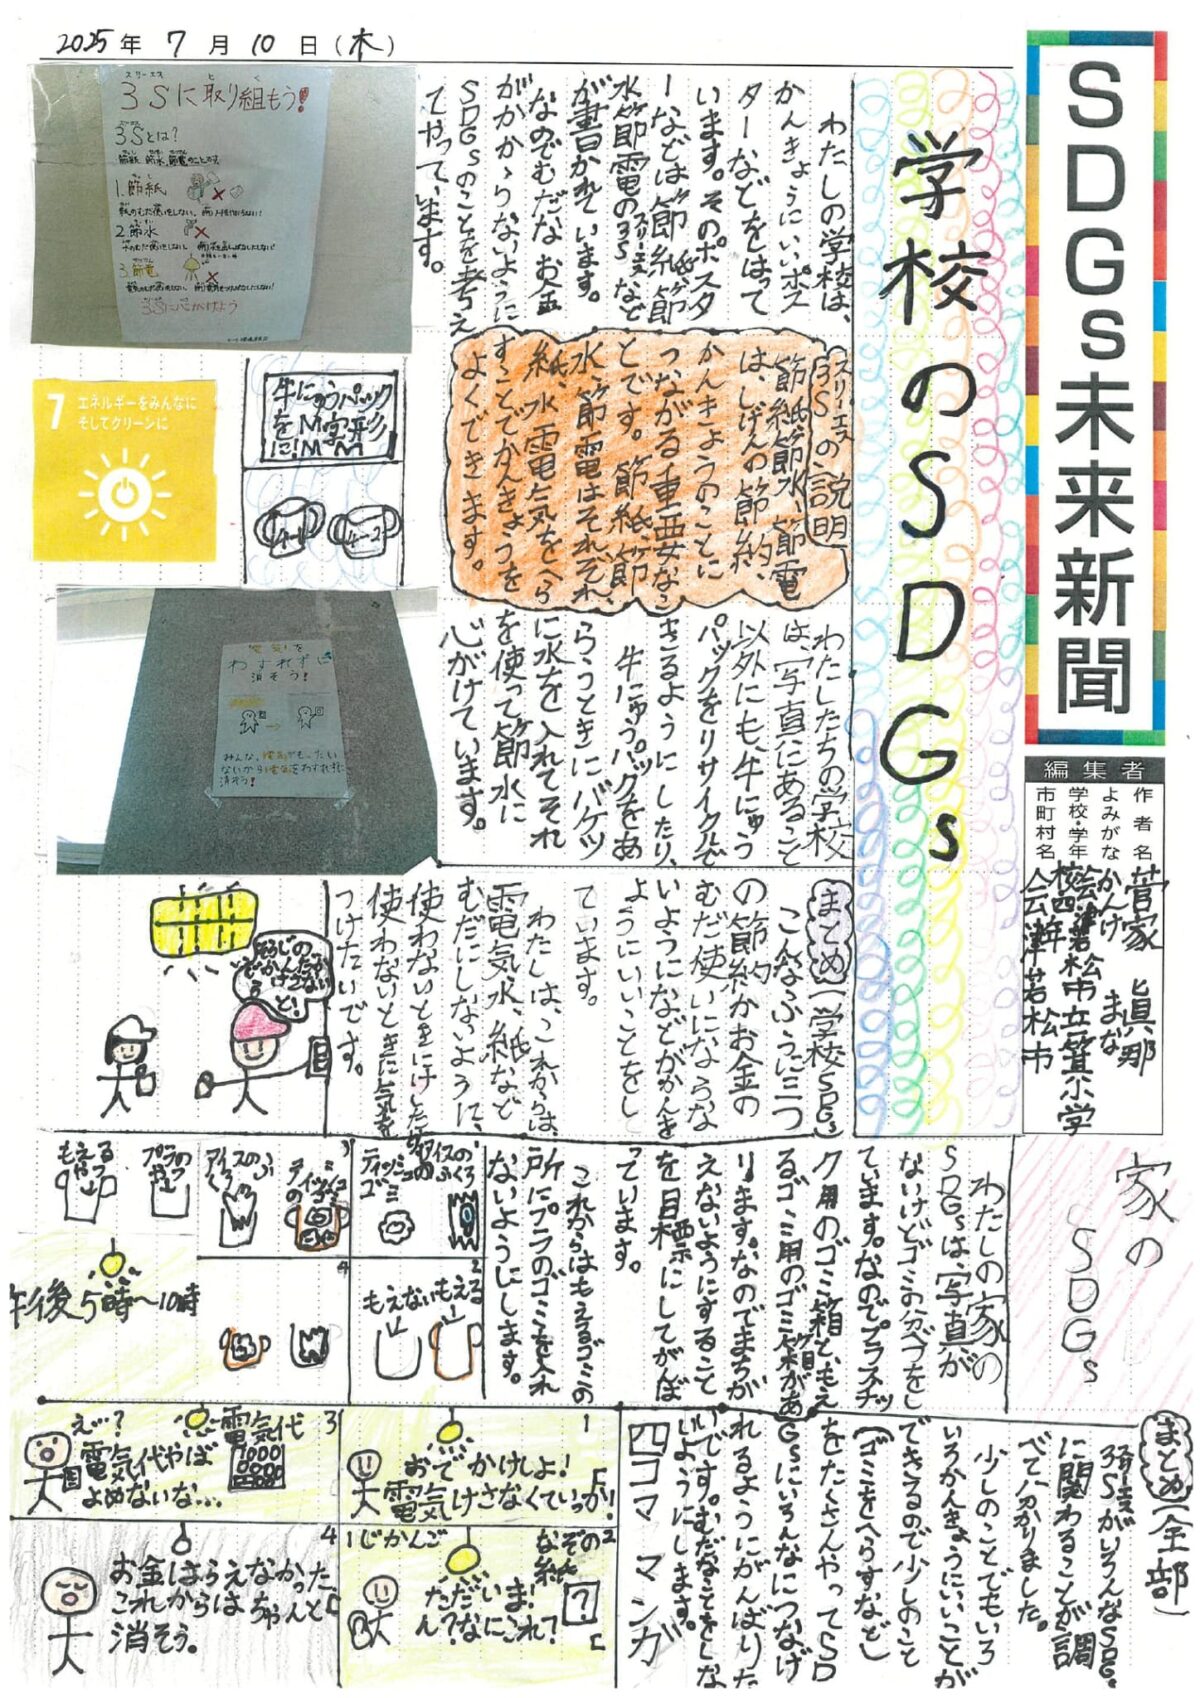 2025年 7月 10日(木)
SDGs未来新聞
編集者
作者名 菅家 眞那
よみがな かんけ まな
学校・学年 会津若松市立一箕小学
校四年
市町村名 会津若松市
学校のSDGs
わたしの学校は、
かんきょうにいいポス
ターなどをはって
います。そのポスタ
ーなどは節紙節
水節電の3Sなど
が書かれています。
なのでむだなお金
がかからないように
SDGsのことを考え
てやっています。
スリーエス
3Sに取り組もう!
3Sとは?
節紙 節水 節電のことです。
1.節紙
2.節水
3.節電
3Sに心がけよう
7 エネルギーをみんなに
そしてクリーンに
牛にゅうパック
をM字形
に!M M
4-1
4-2
スリーエス
3Sの説明
節紙節水、節電
は、しげんの節約、
かんきょうのことに
つながる重要なこ
とです。節紙、節
水、節電はそれぞれ
紙、水、電気をへら
すことでかんきょうを
よくできます。
わたしたちの学校
は、写真にあること
以外にも、牛にゅう
パックをリサイクルで
きるようにしたり、
牛にゅうパックをあ
らうときにバケツ
に水を入れてそれ
を使って節水に
心がけています。
電気を
わすれずに
消そう!
みんな、電気がもったい
ないから電気をわすれずに
消そう!
まとめ(学校SDGs)
こんなふうに三つ
の節約かお金の
むだ使いにならな
いようになどがかんを
ようにいいことをし
ています。
わたしは、これからは、
電気、水、紙など
むだにしないように、
使わないときにけしたり
使わないときに気を
つけたいです。
家のSDGs
わたしの家の
SDGsは、写真が
ないけどゴミの分べつをし
ています。なのでプラスチッ
ク用のゴミ箱ともえ
るゴミ用のゴミ箱があ
ります。なのでまちが
えないようにすること
を目標にしてがんば
っています。
これからはもえるゴミの
所にプラのゴミを入れ
ないようにします。
ティッシュの
ゴミ
アイスの
ふくろ
2
もえない
もえる
3
アイスのふくろ
ティッシュ
の
4
もえる
やつ
プラの
やつ
午後5時〜10時
まとめ(全部)
3SがいろんなSDGs
に関わることが調
べて分かりました。
少しのことでもいろ
いろかんきょうにいいことが
できるので少しのこと
(ゴミをへらすなど)
をたくさんやってSD
Gsにいろんなにつなげ
れるようにがんばりた
いです。むだなことをしな
いようにします。
四コママンガ
1
おでかけしよ!
電気けさなくていっか!
2
1じかんご
なぞの
紙
?
ただいま!
ん?なにこれ?
3
え…?
電気代やば
よめないな…
電気代
4
お金はらえなかった
これからはちゃんと
消そう。